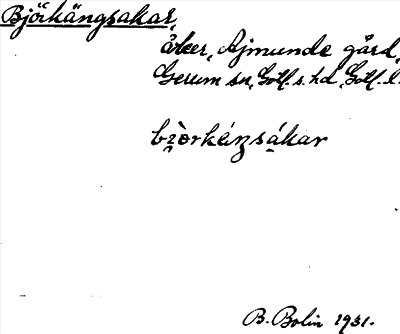 Björkängsakar,
åker, Ajmunde gård,
Gerum sn, Gotl. s. hd, Gotl. l.
bjòrkáŋsákar
B. Bolin 1931.